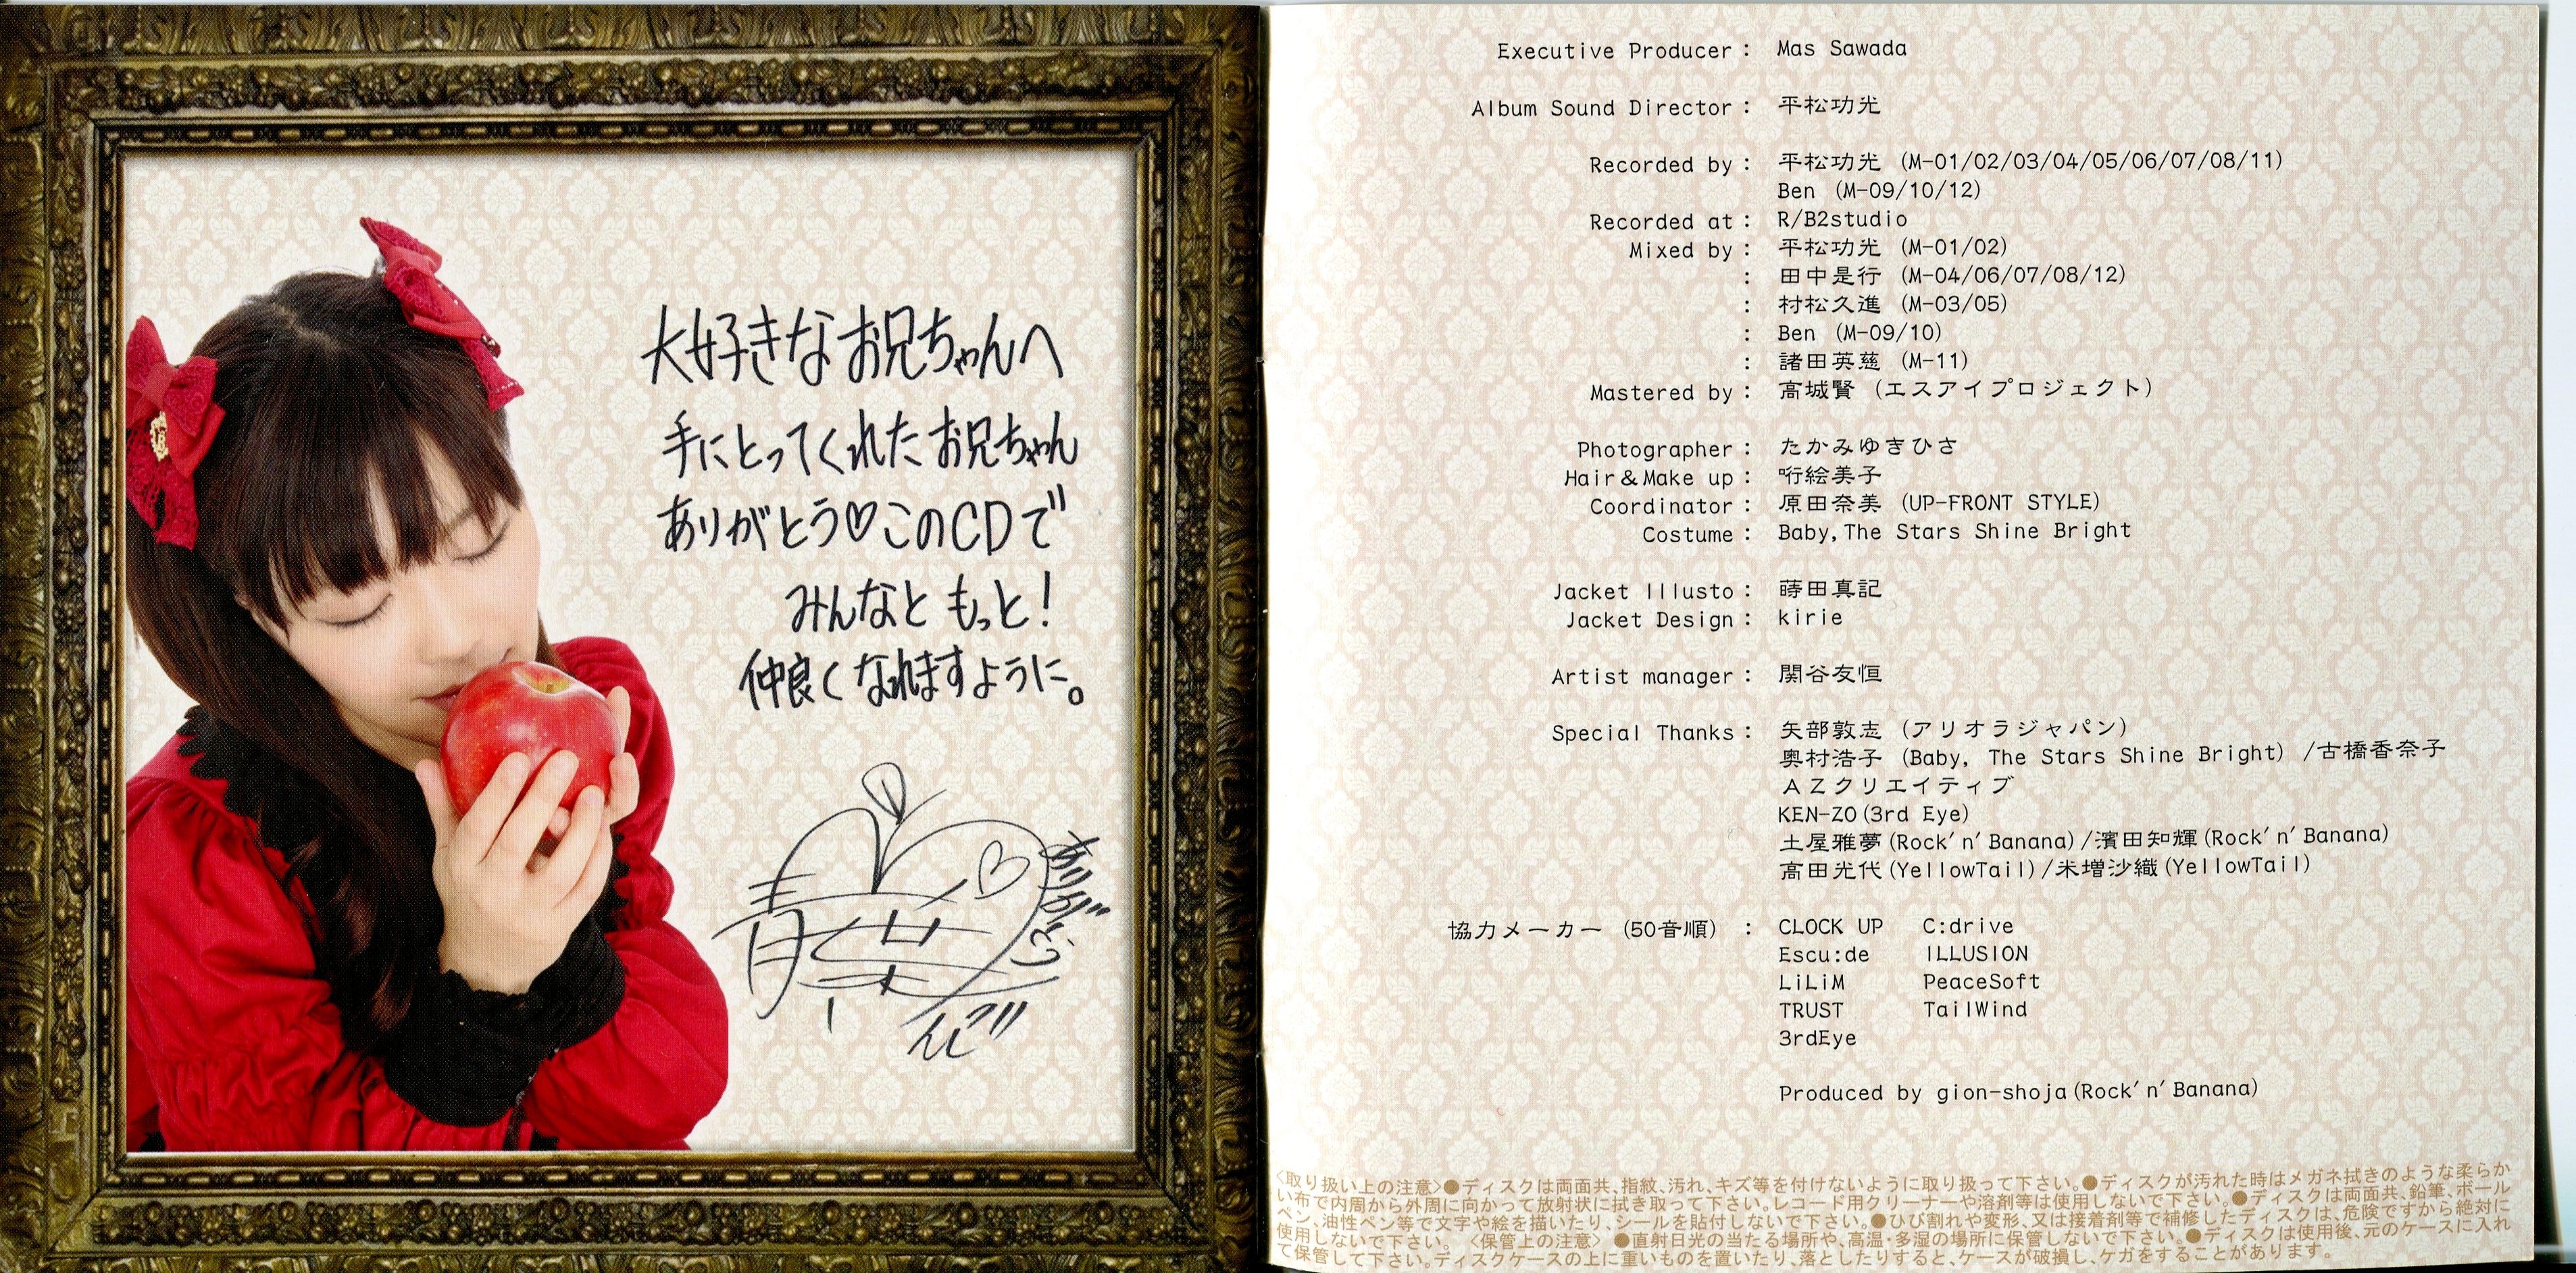 大好きなお兄ちゃんへ
手にとってくれたお兄ちゃん
ありがとう♡このCDで
みんなと もっと!
仲良くなれますように。
Executive Producer : Mas Sawada
Album Sound Director : 平松功光
Recorded by : 平松功光 (M-01/02/03/04/05/06/07/08/11)
Ben (M-09/10/12)
Recorded at : R/B2studio
Mixed by : 平松功光 (M-01/02)
: 田中是行 (M-04/06/07/08/12)
: 村松久進 (M-03/05)
: Ben (M-09/10)
: 諸田英慈 (M-11)
Mastered by : 高城賢 (エスアイプロジェクト)
Photographer : たかみゆきひさ
Hair&Make up : 絵美子
Coordinator : 原田奈美 (UP-FRONT STYLE)
Costume : Baby,The Stars Shine Bright
Jacket Illusto : 蒔田真記
Jacket Design : kirie
Artist manager : 関谷友恒
Special Thanks : 矢部敦志 (アリオラジャパン)
奥村浩子 (Baby, The Stars Shine Bright) /古橋香奈子
AZクリエイティブ
KEN-ZO(3rd Eye)
土屋雅夢(Rock'n'Banana)/濱田知輝(Rock'n'Banana)
高田光代(YellowTail)/米増沙織(YellowTail)
協力メーカー (50音順) : CLOCK UP C:drive
Escu:de ILLUSION
LiLiM PeaceSoft
TRUST TailWind
3rdEye
Produced by gion-shoja(Rock'n'Banana)
<取り扱い上の注意>●ディスクは両面共、指紋、汚れ、キズ等を付けないように取り扱って下さい。●ディスクが汚れた時はメガネ拭きのような柔らか
い布で内周から外周に向かって放射状に拭き取って下さい。レコード用クリーナーや溶剤等は使用しないで下さい。●ディスクは両面共、鉛筆、ボール
ペン、油性ペン等で文字や絵を描いたり、シールを貼付しないで下さい。●ひび割れや変形、又は接着剤等で補修したディスクは、危険ですから絶対に
使用しないで下さい。 <保管上の注意> ●直射日光の当たる場所や、高温・多湿の場所に保管しないで下さい。●ディスクは使用後、元のケースに入れ
て保管して下さい。ディスクケースの上に重いものを置いたり、落としたりすると、ケースが破損し、ケガをすることがあります。